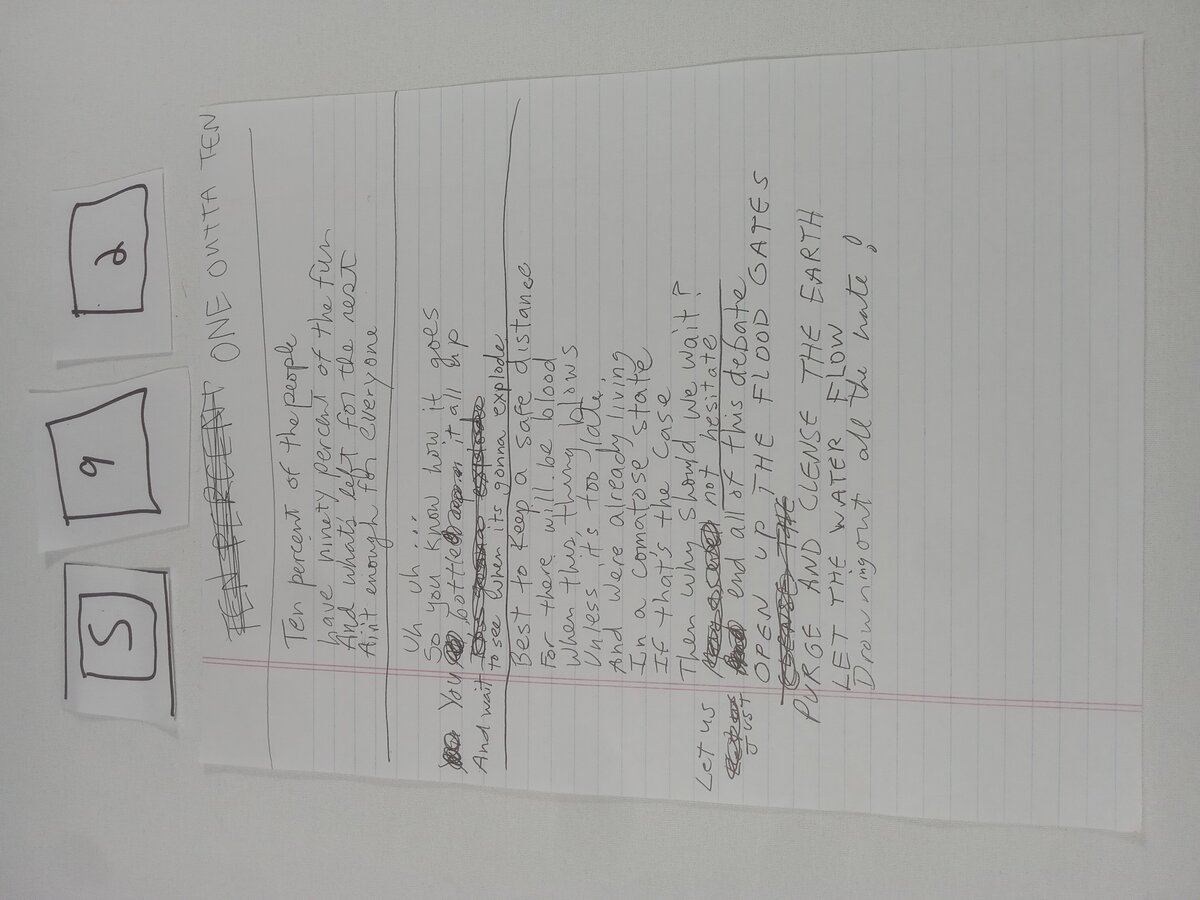 5 9 2
TEN PERCENT ONE OUTTA TEN
Ten percent of the people
have ninety percent of the fun
And whats left for the rest
Ain't enough for everyone
Uh uh...
So you know how it goes
You bottle it all up
And wait its gonna explode
to see when its gonna explode
Best to keep a safe distance
For there will be blood
When this thing blows
Unless it's too late
And were already living
In a comatose state
If that's the case
Then why should we wait?
Let us not hesitate
Just end all of this debate
OPEN UP THE FLOOD GATES
CLENSE THE
PURGE AND CLENSE THE EARTH
LET THE WATER FLOW
Drowning out all the hate!